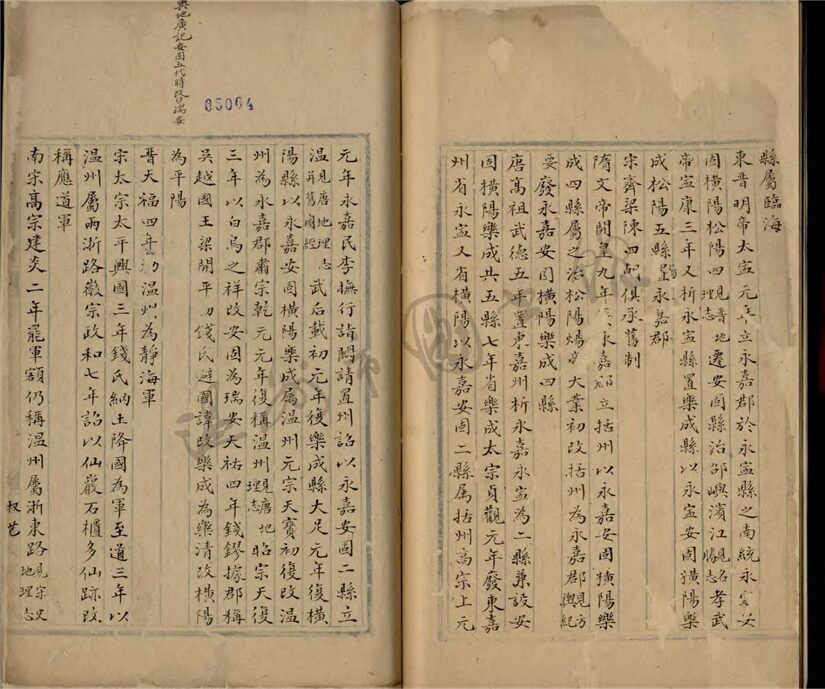 縣屬臨海
東晉明帝太寧元年立永嘉郡於永寧縣之南統永寧安
固橫陽松陽四見晉地理志遷安固縣治邵嶼濱江見名勝志孝武
帝寧康三年又析永寧縣置樂成縣以永寧安固橫陽樂
成松陽五縣皆屬永嘉郡
宋齊梁陳四朝俱承舊制
隋文帝開皇九年永嘉郡立括州以永嘉安固橫陽樂
成四縣屬之治松陽煬帝大業初改括州為永嘉郡見方輿紀
要發永嘉安固橫陽樂成四縣
唐高祖武德五年置東嘉州析永嘉永寧為二縣兼設安
固橫陽樂成共五縣七年省樂成太宗貞觀元年廢東嘉
州省永寧又省橫陽以永嘉安固二縣屬括州高宗上元
輿地廣記安固五代時改曰瑞安
05004
元年永嘉民李撫行詣闕請置州詔以永嘉安固二縣立
溫見唐地理志并舊圖經武后載初元年復樂成縣大足元年復橫
陽縣以永嘉安固橫陽樂成屬溫州元宗天寶初復改溫
州為永嘉郡肅宗乾元元年復稱溫州見唐地理志昭宗天復
三年以白烏之祥改安固為瑞安天祐四年錢鏐據郡稱
吳越國王梁開平初錢氏避國諱改樂成為樂清改橫陽
為平陽
晉天福四年勅溫州為靜海軍
宗太宗太平興國三年錢氏納土降國為軍至道三年以
溫州屬兩浙路徽宗政和七年詔以仙巖石櫃多仙跡改
稱應道軍
南宋高宗建炎二年罷軍額仍稱溫州屬浙東路見宋史地理志
权艺